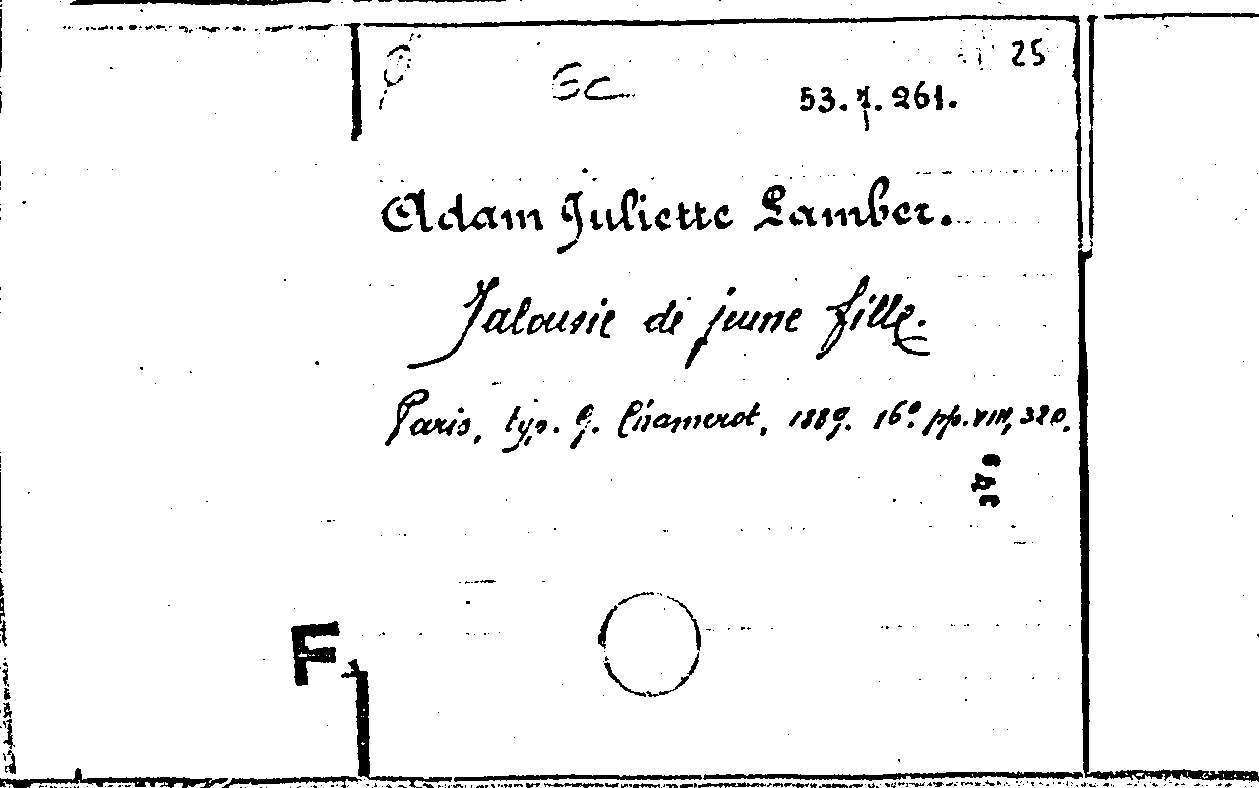 25
GC
53.7.261.
Adam Juliette Lamber.
Jalousie de jeune fille.
Paris, typ. G. Chamerot, 1889. 16º. pp. VIII, 320.
F